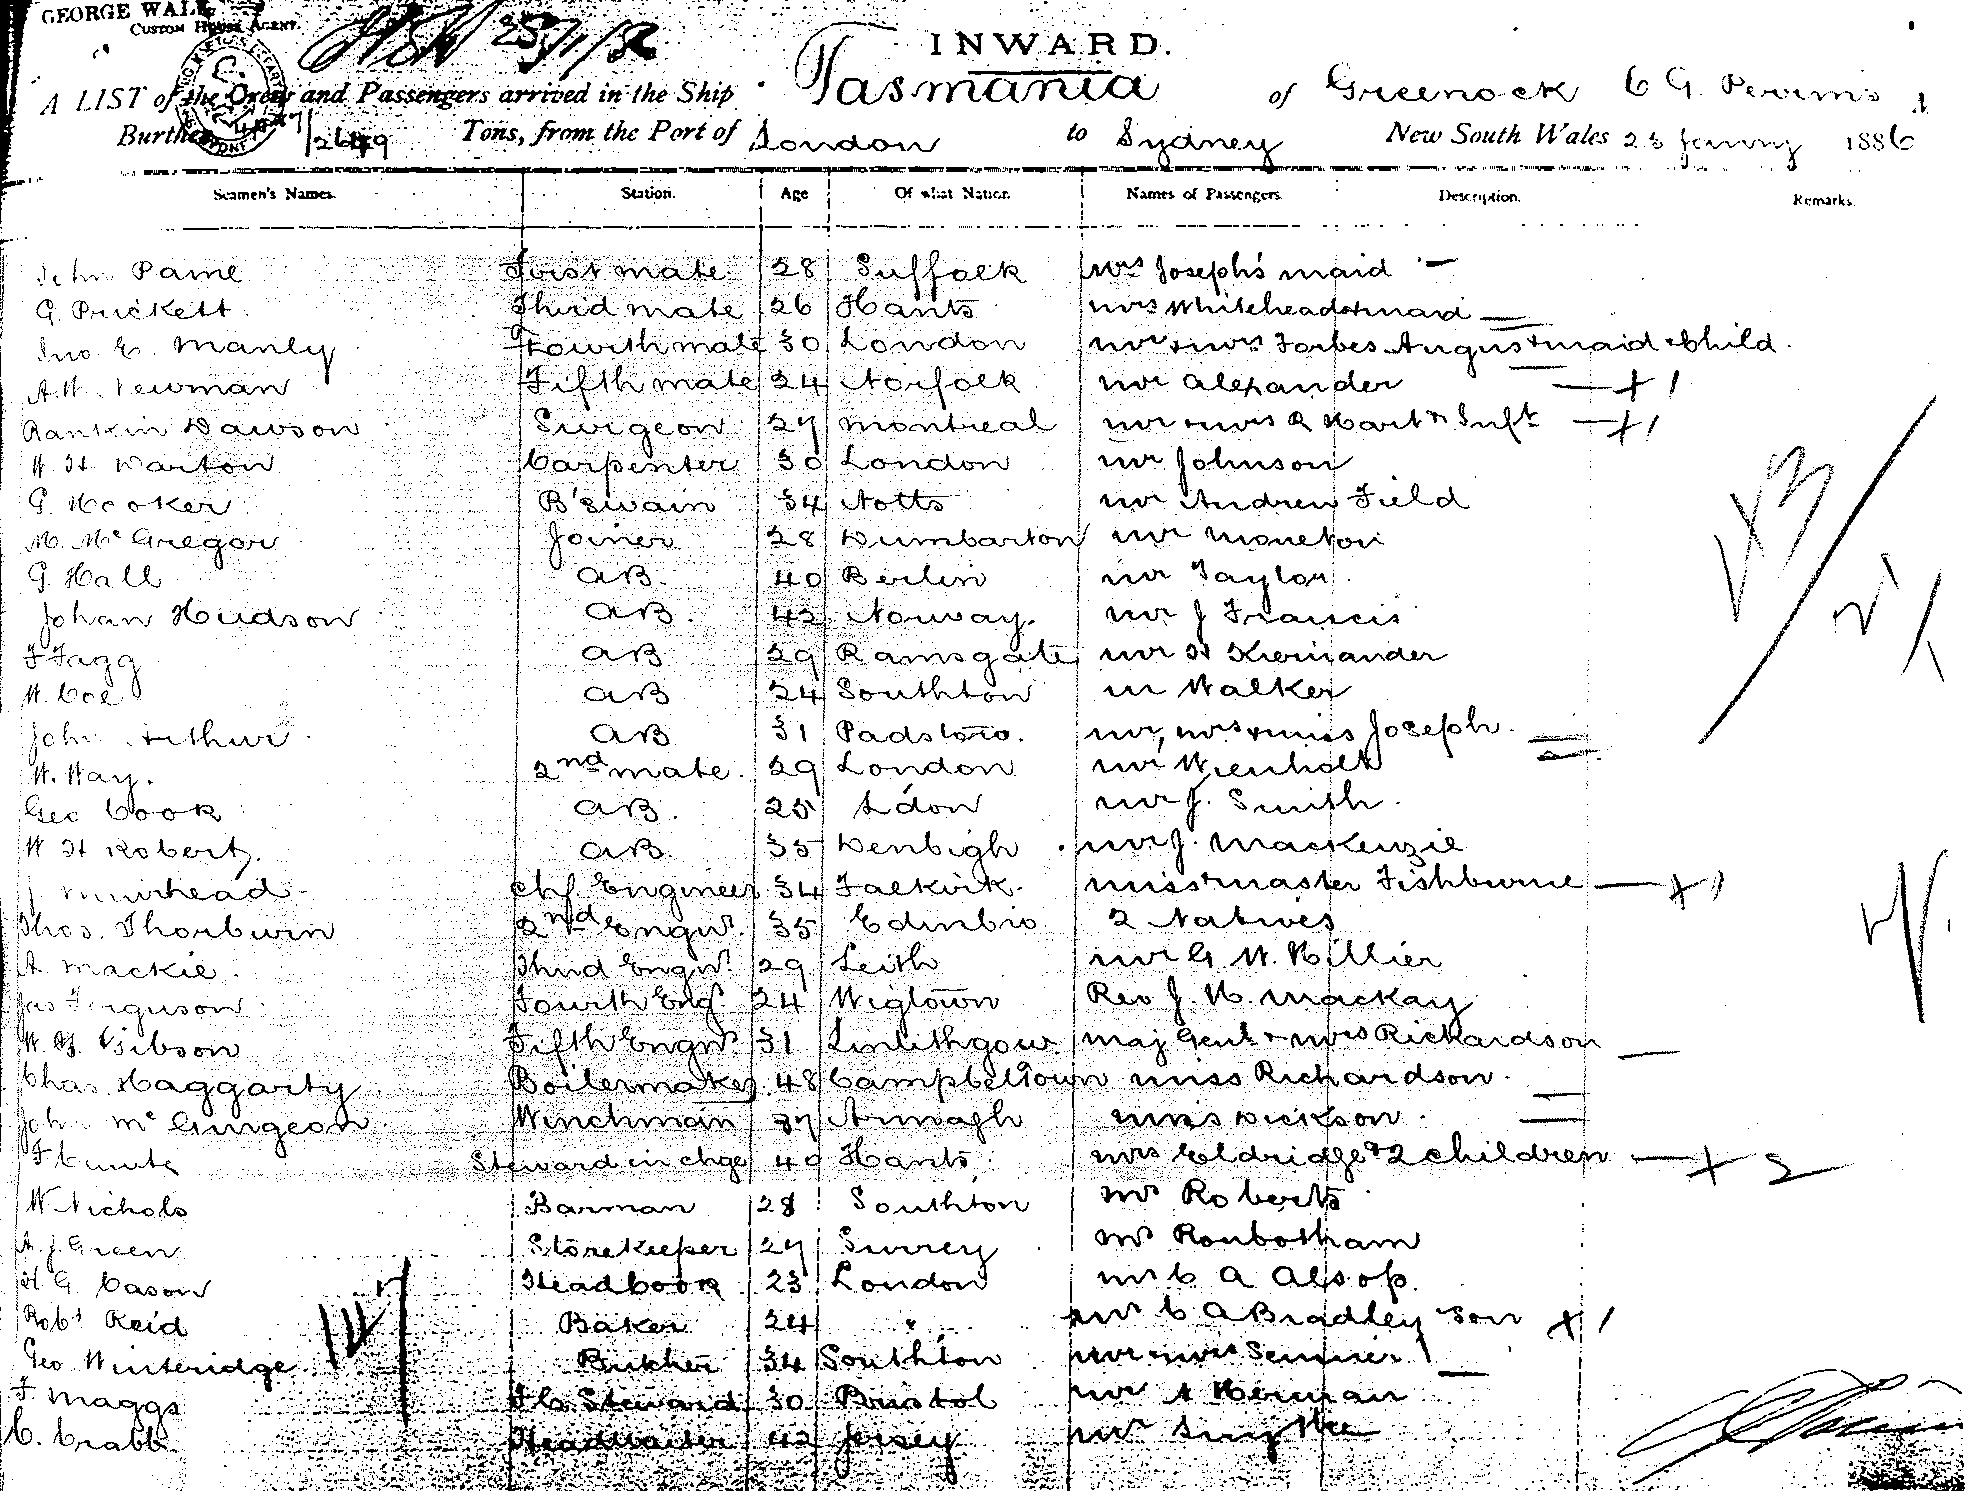 GEORGE WAL
CUSTOM HOUSE AGENT.
INWARD.
A LIST of the Crew and Passengers arrived in the Ship Tasmania of Greenock C G Perrins
Burthen 2649 Tons, from the Port of London to Sydney New South Wales 23 January 1886
Seamen's Names. Station. Age Of what Nation. Names of Passengers. Description. Remarks.
John Paine First mate 28 Suffolk Mrs Joseph's maid
G. Prickett Third mate 26 Hants Mrs Whitehead & maid
Jno. E. Manly Fourth mate 30 London Mr & Mrs Forbes Angus & maid & Child.
A.W. Newman Fifth mate 24 Norfolk Mr Alexander + 1
Rankin Dawson Surgeon 27 Montreal Mr & Mrs R Hart & Inft + 1
W. H. Warton Carpenter 30 London Mr Johnson
G. Hooker B'swain 34 Notts Mr Andrew Field
M. McGregor Joiner 28 Dumbarton Mr Moneton
G. Hall AB. 40 Berlin Mr Taylor
Johan Hudson AB. 42 Norway. Mr J Francis
F Fagg AB 29 Ramsgate Mr H Kiernander
W. Coe AB 24 Southton M Walker
John Arthur AB 31 Padstow. Mr, Mrs & Miss Joseph
W. Way. 2nd mate. 29 London Mr Wienholt
Geo Cook AB. 25 Ldon Mr J. Smith
W H Roberts. AB 35 Denbigh Mr J. Mackenzie
J Muirhead Chf Engineer 34 Falkirk Miss & Master Fishburne + 1
Thos. Thorburn 2nd Engnr. 35 Edinbro 2 Natives
A Mackie. Third Engnr. 29 Leith Mr G W. Hillier
Jas Ferguson Fourth Engr 24 Wigtown Rev J. H. Mackay
W. Gibson Fifth Engnr 31 Linlithgow Maj Genl & Mrs Richardson
Chas. Haggarty Boilermaker 48 Campbeltown Miss Richardson
John McGurgeon Winchman 37 Armagh Miss Dickson
F Steward in chge 40 Hants Mrs Eldridge & 2 children + 2
W Nichols Barman 28 Southton Mr Roberts
A. J. Green Storekeeper 27 Surrey Mr Roubotham
H G Cason Head Cook 23 London Mr C A Alsop.
Robt Reid Baker 24 " Mr C A Bradley & son + 1
Geo Winteridge Butcher 34 Southton Mr & Mrs
F Maggs Steward 30 Bristol Mr A Herman
C. Crabb Headwaiter 42 Jersey Mr